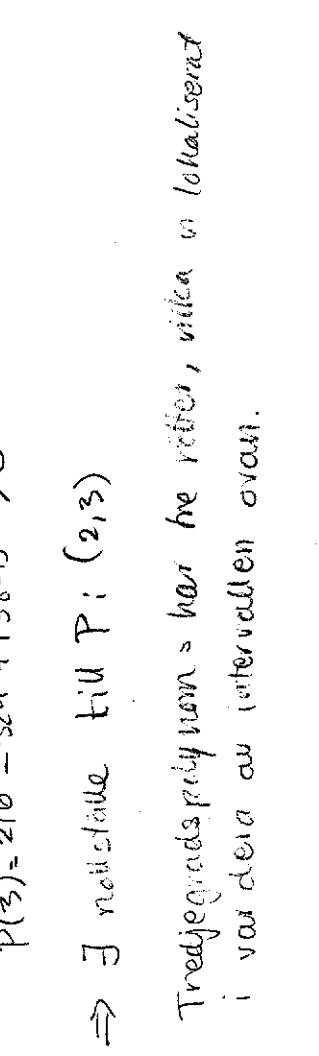 P(3)=216-324+138-15 >0
⇒ ∃ nollställe till P i (2,3)
Tredjegradspolynom ⇒ har tre rötter, vilka vi lokaliserat
i var dera av intervallen ovan.